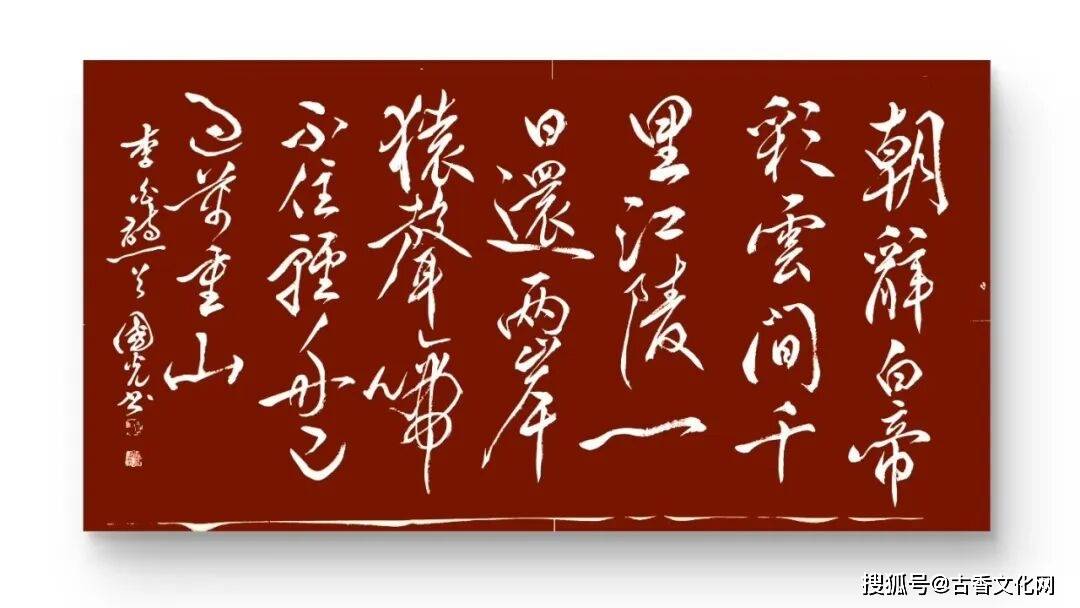 朝辭白帝
彩雲間千
里江陵一
日還两岸
猿聲啼
不住輕舟已
過萬重山
李白詩一首 國光书
搜狐号@古香文化网